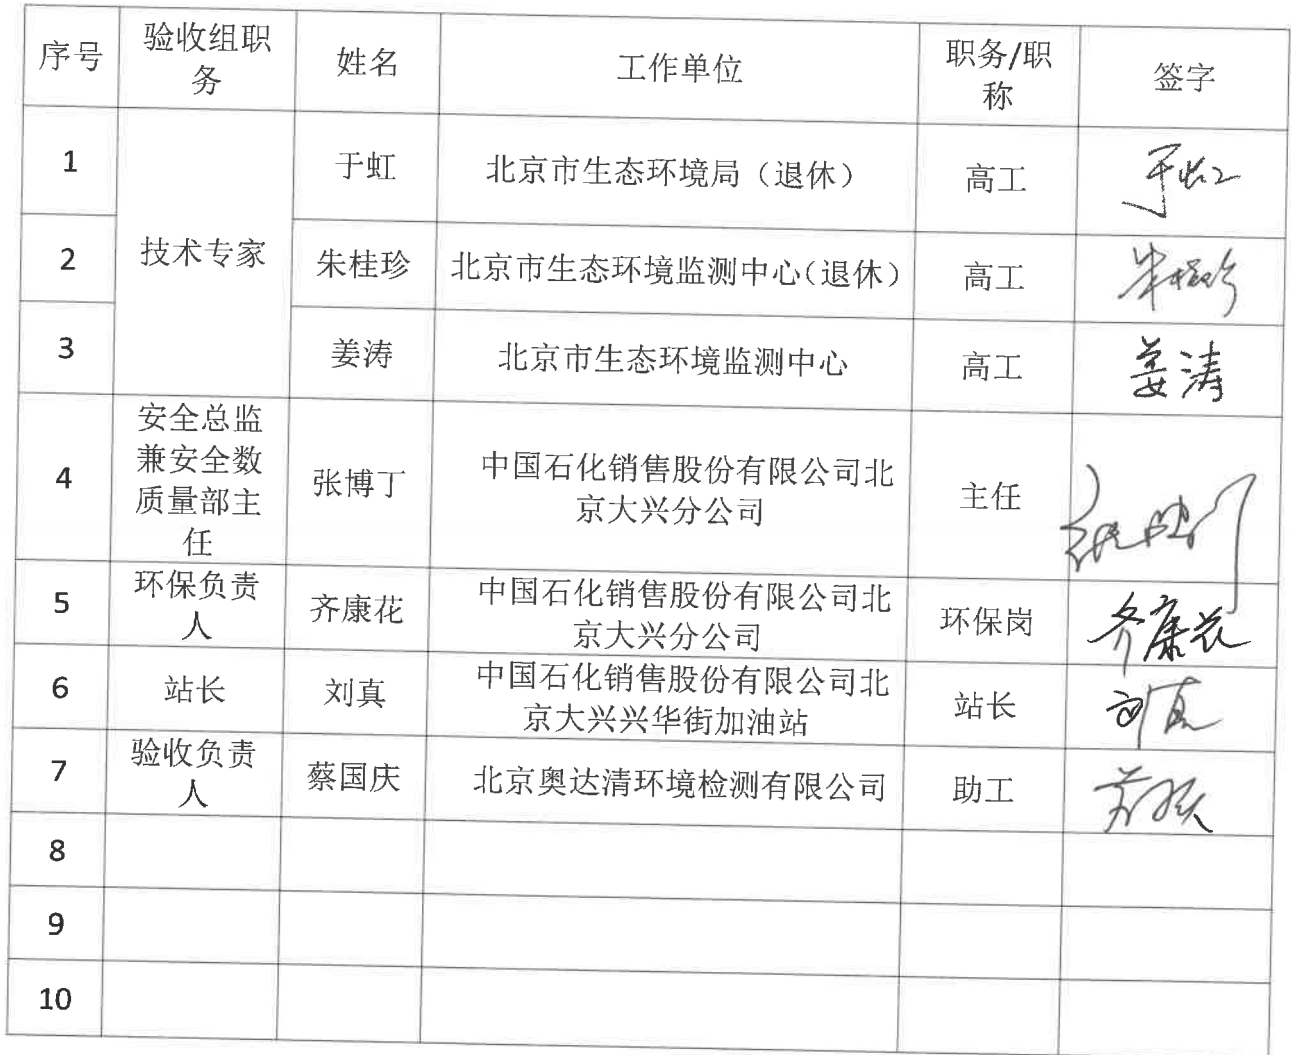 序号 验收组职务 姓名 工作单位 职务/职称 签字
1 技术专家 于虹 北京市生态环境局（退休） 高工 于虹
2 朱桂珍 北京市生态环境监测中心（退休） 高工 朱桂珍
3 姜涛 北京市生态环境监测中心 高工 姜涛
4 安全总监兼安全数质量部主任 张博丁 中国石化销售股份有限公司北京大兴分公司 主任 张博丁
5 环保负责人 齐康花 中国石化销售股份有限公司北京大兴分公司 环保岗 齐康花
6 站长 刘真 中国石化销售股份有限公司北京大兴兴华街加油站 站长 刘真
7 验收负责人 蔡国庆 北京奥达清环境检测有限公司 助工
8
9
10